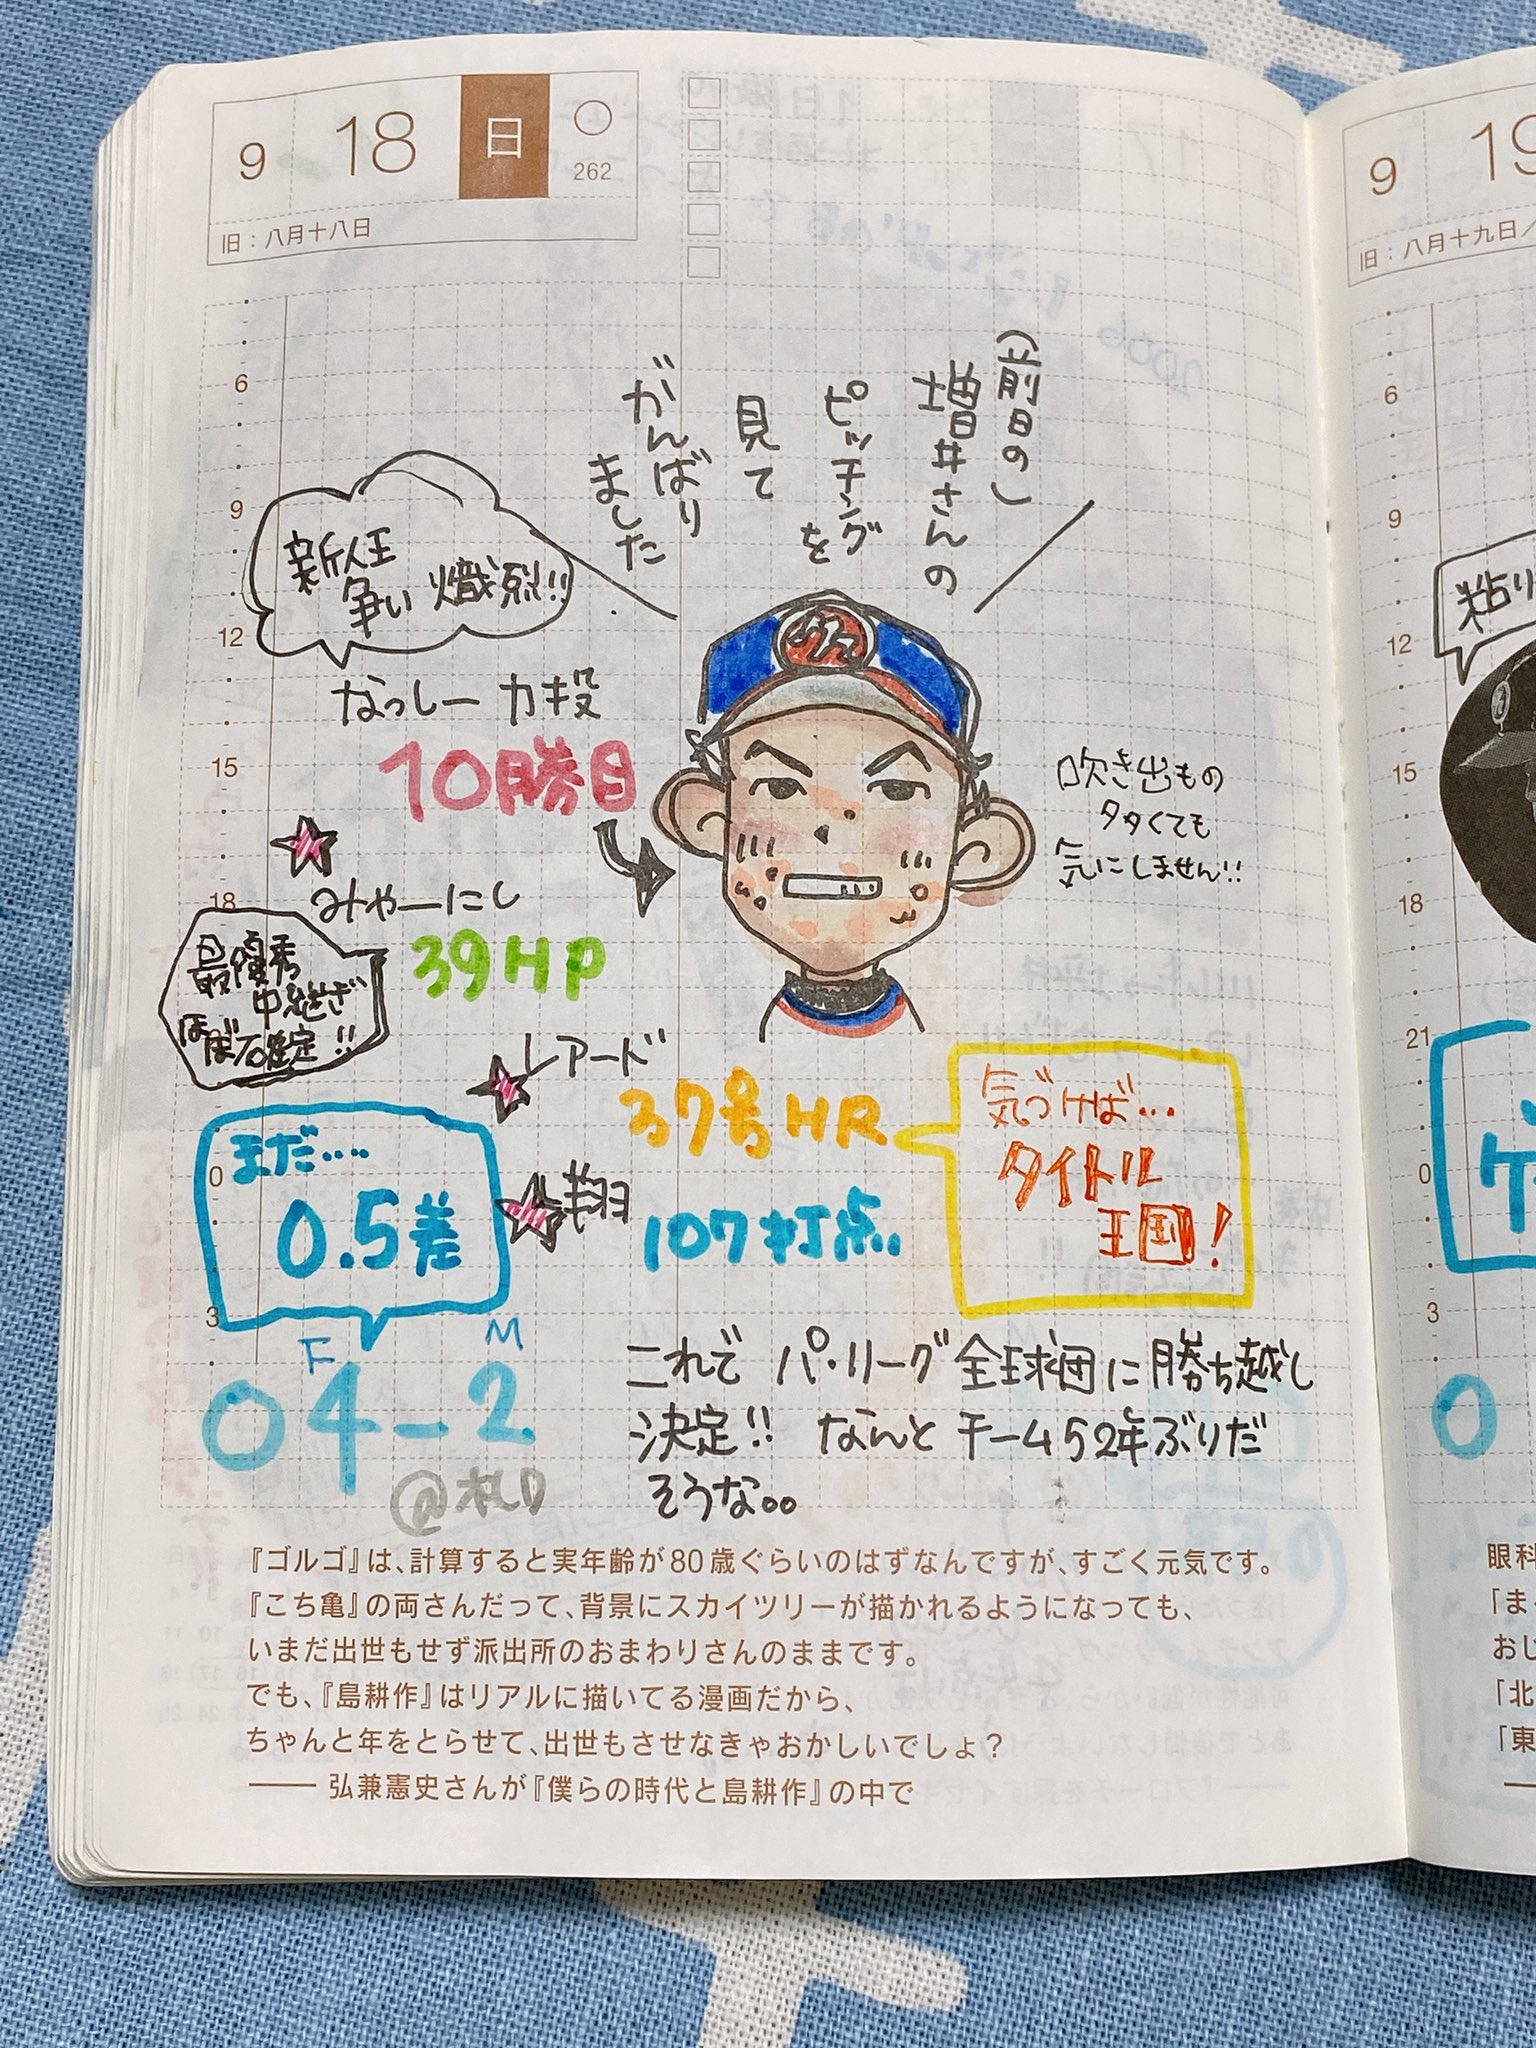 9 18 日
262
旧：八月十八日
(前日の)
増井さんの
ピッチングを
見て
がんばり
ました
新人王
争い 熾烈!!
なっしー 力投
10勝目
吹き出もの
多くても
気にしません!!
みやーにし
39HP
最優秀
中継ぎ
ほぼ確定!!
レアード
37号HR
気づけば…
タイトル
王国!
まだ….
0.5差
翔
107打点
F M
○4-2
@札D
これで パ・リーグ 全球団に勝ち越し
決定!! なんと チーム52年ぶりだ
そうな。。
6
9
12
15
18
0
3
『ゴルゴ』は、計算すると実年齢が80歳ぐらいのはずなんですが、すごく元気です。
『こち亀』の両さんだって、背景にスカイツリーが描かれるようになっても、
いまだ出世もせず派出所のおまわりさんのままです。
でも、『島耕作』はリアルに描いてる漫画だから、
ちゃんと年をとらせて、出世もさせなきゃおかしいでしょ？
―― 弘兼憲史さんが『僕らの時代と島耕作』の中で
9 19
旧：八月十九日／
粘り
6
9
12
15
18
21
0
3
眼科
「ま
おじ
「北
「東